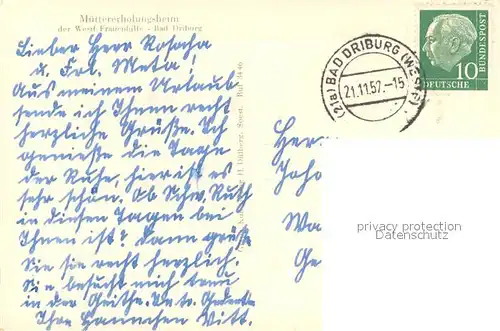 Müttererholungsheim
der Westf. Frauenhilfe - Bad Driburg
Lieber Herr Rosocha
u. Frl. Meta!
Aus meinem Urlaub
sende ich Ihnen recht
herzliche Grüße. Ich
genieße die Tage
der Ruhe, hier ist es
sehr schön. Ob Schw. Ruth
in diesen Tagen bei
Ihnen ist? Dann grüße
Sie sie recht herzlich.
Sie besucht mich treu
in der
Ihre Hannchen Witt.
H. Dülberg, Soest, Ruf
(21a) BAD DRIBURG (WESTF)
21.11.57.-15
10
DEUTSCHE
BUNDESPOST
Her
Joho
Wa
Ge
privacy protection
Datenschutz